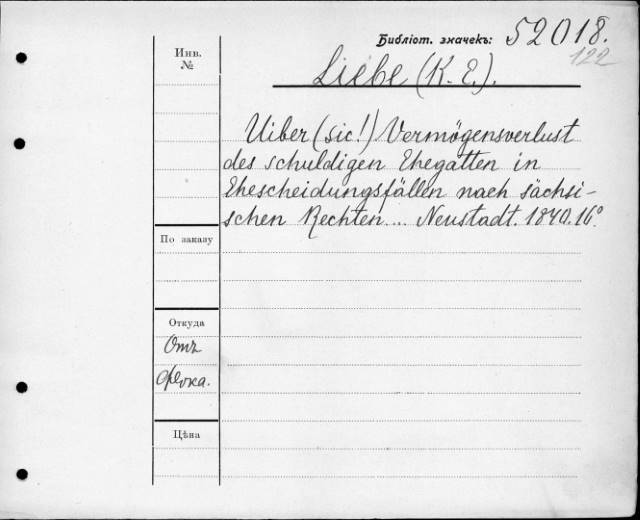 Библіот. значекъ: 52018.
122
Инв.
№
Liebe (K. E.).
Uiber (sic!) Vermögensverlust
des schuldigen Ehegatten in
Ehescheidungsfällen nach sächsi-
schen Rechten.... Neustadt. 1840. 16º
По заказу
Откуда
Отъ
Фока.
Цѣна